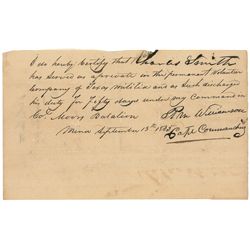 I do hereby Certify that Charles Smith
has Served as a private in the permanent Volunteer
Company of Texas Militia and as Such discharged
his duty for Fifty days under my Command in
Col Moors Batalion
R M Williamson
Mina September 13th 1835
Capt Commanding